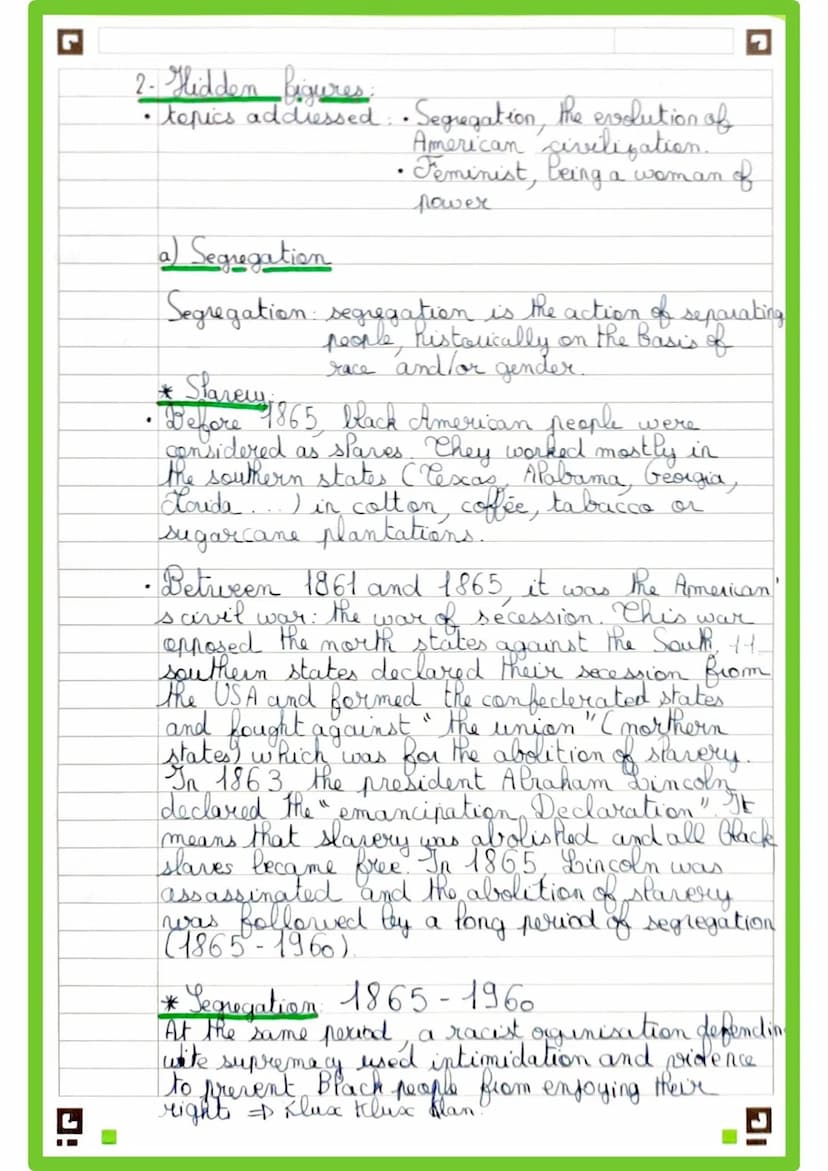 2- Hidden figures:
• topics addressed: • Segregation, the evolution of
American civilization.
• Feminist, being a woman of
power
a) Segregation
Segregation: segregation is the action of separating
people, historically on the basis of
race and/or gender.
* Slavery:
• Before 1865, black American people were
considered as slaves. They worked mostly in
the southern states (Texas, Alabama, Georgia,
Florida ...) in cotton, coffee, tabacco or
sugarcane plantations.
• Between 1861 and 1865, it was the American'
s civil war: the war of sécession. This war
opposed the north states against the South. 11
southern states declared their secession from
the USA and formed the confederated states
and fought against "the union" (northern
states) which was for the abolition of slavery.
In 1863 the president Abraham Lincoln
declared the "emancipation Declaration". It
means that slavery was abolished and all black
slaves became free. In 1865, Lincoln was
assassinated and the abolition of slavery
was followed by a long period of segregation
(1865-1960).
* Segregation: 1865-1960
At the same period, a racist organisation defendin
wite supremacy used intimidation and violence
to prevent Black people from enjoying their
right => Klux Klux Klan.